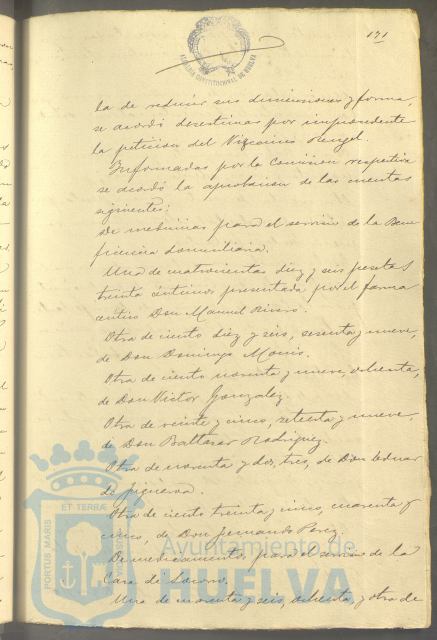 171
ALCALDIA CONSTITUCIONAL DE HUELVA
la de reducir sus dimensiones y forma,
se acordó desestimar por improcedente
la peticion del Vizcaino Rengel.
Informadas por la Comision respectiva
se acordó la aprobacion de las cuentas
siguientes:
De medicinas para el servicio de la Bene
ficencia domiciliaria.
Una de cuatrocientas diez y seis pesetas
treinta céntimos presentada por el farma
céutico Don Manuel Rivero.
Otra de ciento diez y seis, sesenta y nueve,
de Don Domingo
Otra de ciento noventa y nueve, ochenta,
de Don Victor Gonzalez.
Otra de veinte y cinco, setenta y nueve,
de Don Baltasar Rodriguez.
Otra de noventa y dos, tres, de Don Eduar
do Figueroa.
Otra de ciento treinta y cinco, cuarenta y
cinco, de Don Fernando Perez.
De medicamentos, para el servicio de la
Casa de Socorro,
Una de noventa y seis, ochenta, y otra de
PORTUS MARIS ET TERRÆ
Ayuntamiento de
HUELVA